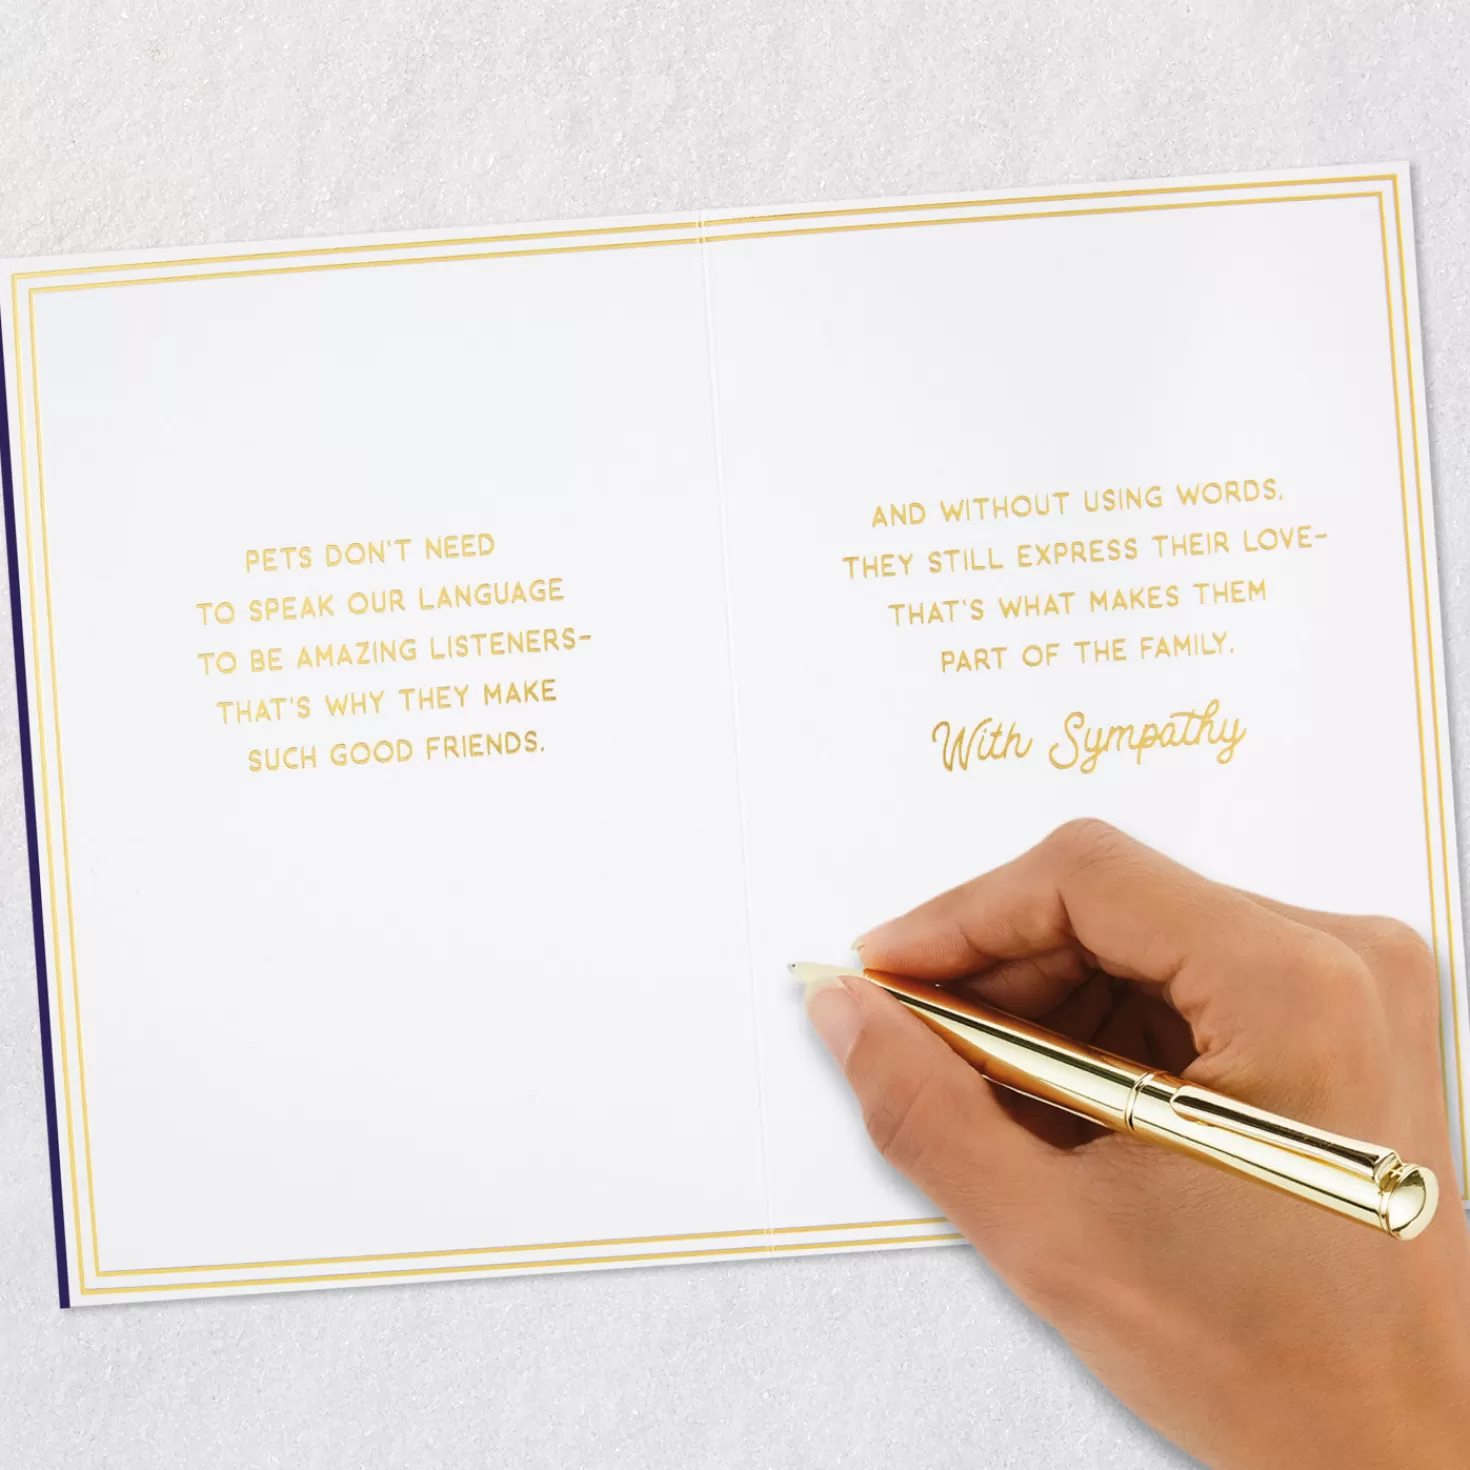 PETS DON'T NEED
TO SPEAK OUR LANGUAGE
TO BE AMAZING LISTENERS–
THAT'S WHY THEY MAKE
SUCH GOOD FRIENDS.
AND WITHOUT USING WORDS,
THEY STILL EXPRESS THEIR LOVE–
THAT'S WHAT MAKES THEM
PART OF THE FAMILY.
With Sympathy